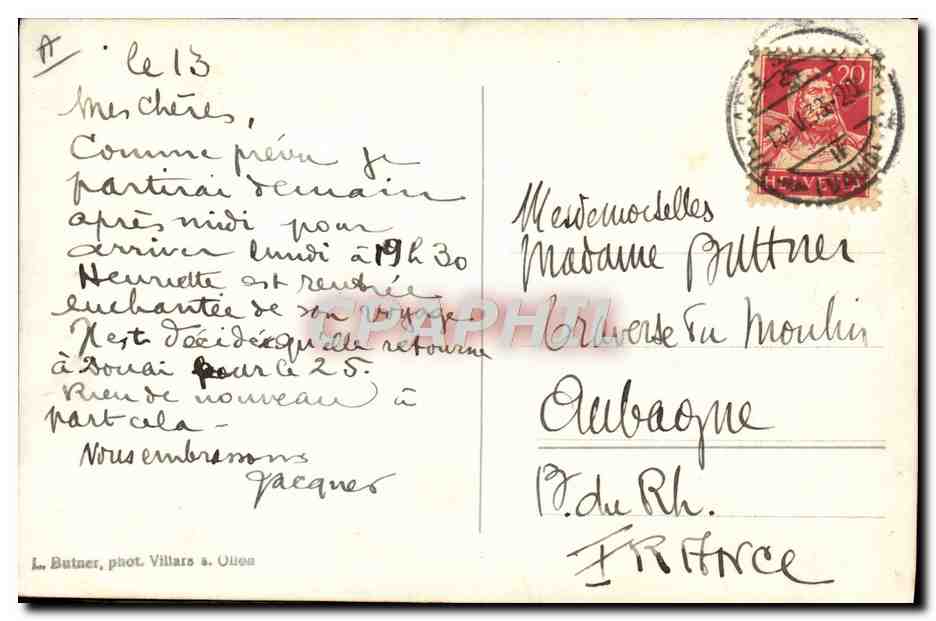 A
le 13
Mes chères,
Comme prévu je
partirai demain
après midi pour
arriver lundi à 19h30
Henriette est rentrée
enchantée de son voyage
Il est décidé qu'elle retourne
à Douai pour le 25.
Rien de nouveau à
part cela -
Nous embrassons
Jacques
L. Butner, phot. Villars s. Ollon
20
HELVETIA
Mesdemoiselles
Madame Buttner
Traverse du Moulin
Aubagne
B. du Rh.
FRANCE
CPAPHIL